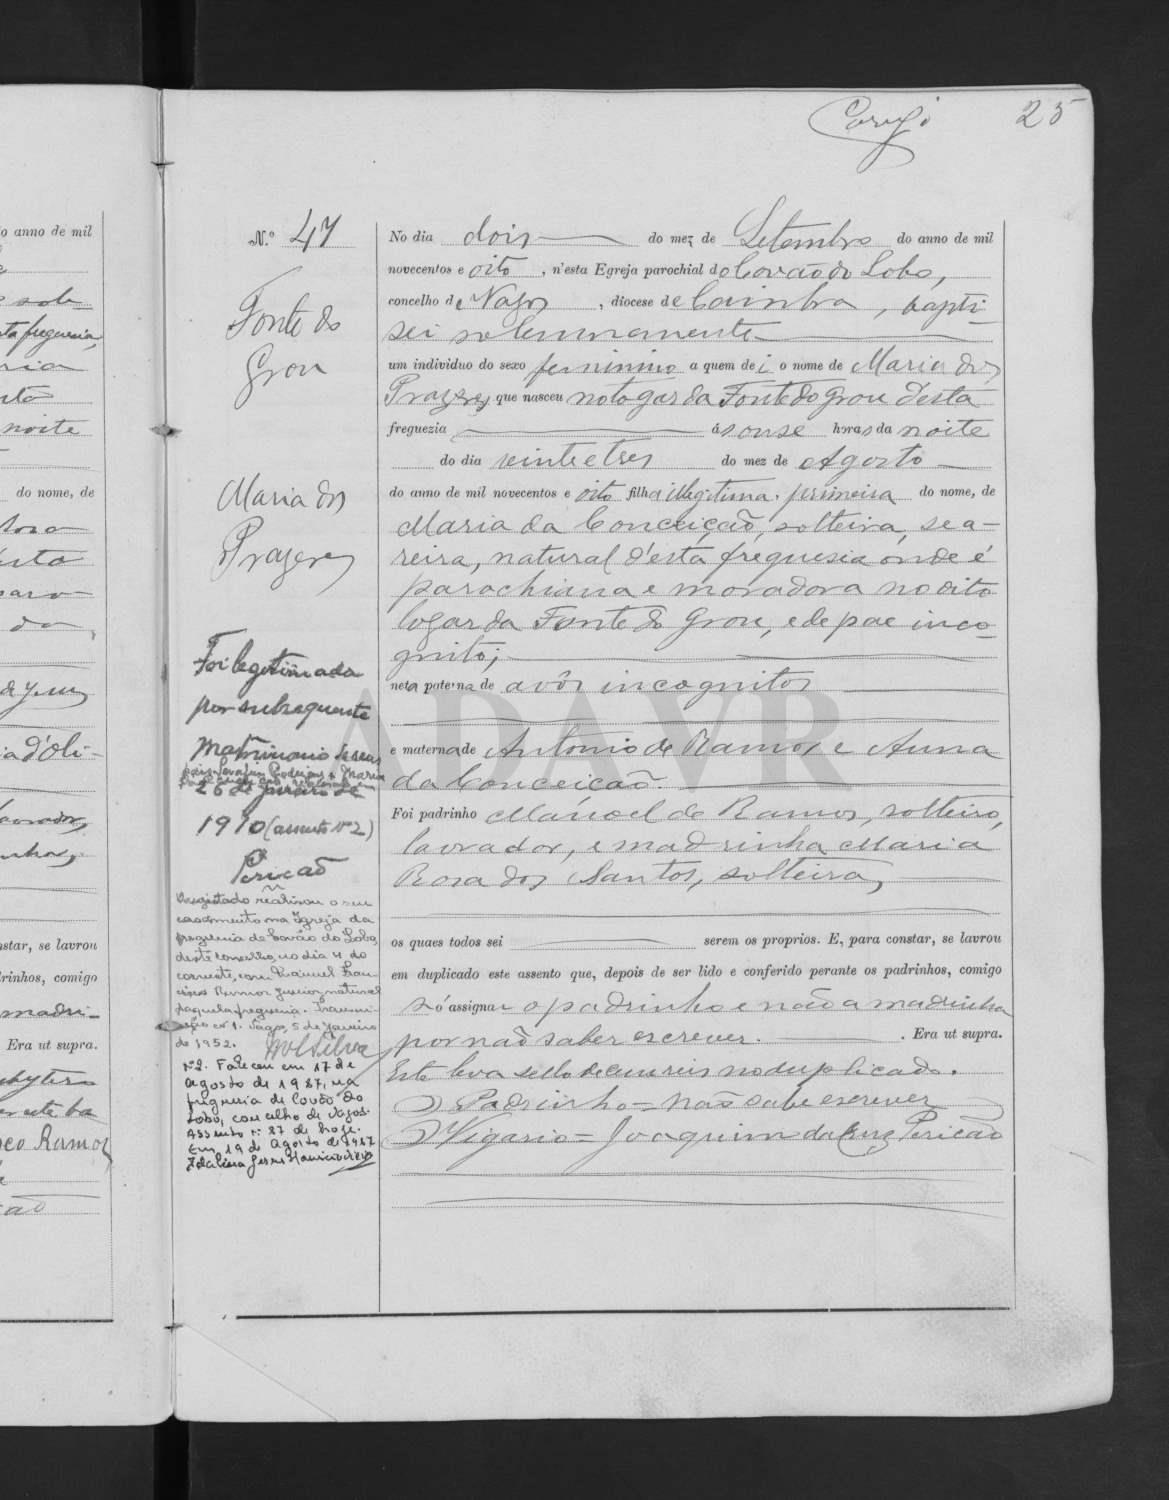 25
N.º 47
Fonte do
Grou
Maria dos
Prazeres
Foi legitimada
por subsequente
matrimonio de seus
26 de janeiro de
1910 (assento nº 2)
Pericão
realisou o seu
casamento na Igreja da
freguesia de Covão do Lobo,
deste concelho, no dia 4 do
corrente, com Manuel Fran-
Ramos Junior, natural
daquela freguesia.
nº 1. Vagos, 5 de Janeiro
de 1952.
Nº2. Faleceu em 17 de
Agosto de 1987, na
freguesia de Covão do
Lobo, concelho de Vagos.
Assento nº 27 de hoje.
Em 19 de Agosto de 1987
No dia dois do mez de Setembro do anno de mil
novecentos e oito, n'esta Egreja parochial do Covão do Lobo,
concelho de Vagos, diocese de Coimbra, bapti-
sei solemnemente
um individuo do sexo feminino a quem dei o nome de Maria dos
Prazeres que nasceu no logar da Fonte do Grou d'esta
freguezia ás onse horas da noite
do dia vinte e tres do mez de Agosto
do anno de mil novecentos e oito filha illegitima, primeira do nome, de
Maria da Conceição, solteira, sea-
reira, natural d'esta freguesia onde é
parochiana e moradora no dito
logar da Fonte do Grou, e de pae inco-
gnito;
neta paterna de avós incognitos
e materna de Antonio de Ramos e Anna
da Conceicão.
Foi padrinho Manoel de Ramos, solteiro,
lavrador, e madrinha Maria
Rosa dos Santos, solteira,
os quaes todos sei serem os proprios. E, para constar, se lavrou
em duplicado este assento que, depois de ser lido e conferido perante os padrinhos, comigo
só assignar o padrinho e não a madrinha
por não saber escrever. . Era ut supra.
Este leva sello de cem reis no duplicado.
O Padrinho = Não sabe escrever
O Vigario = Joaquim da Cruz Pericão
ADAVR
o anno de mil
ta freguesia,
noite
do nome, de
d'Oli-
star, se lavrou
rinhos, comigo
madri-
Era ut supra.
Ramos